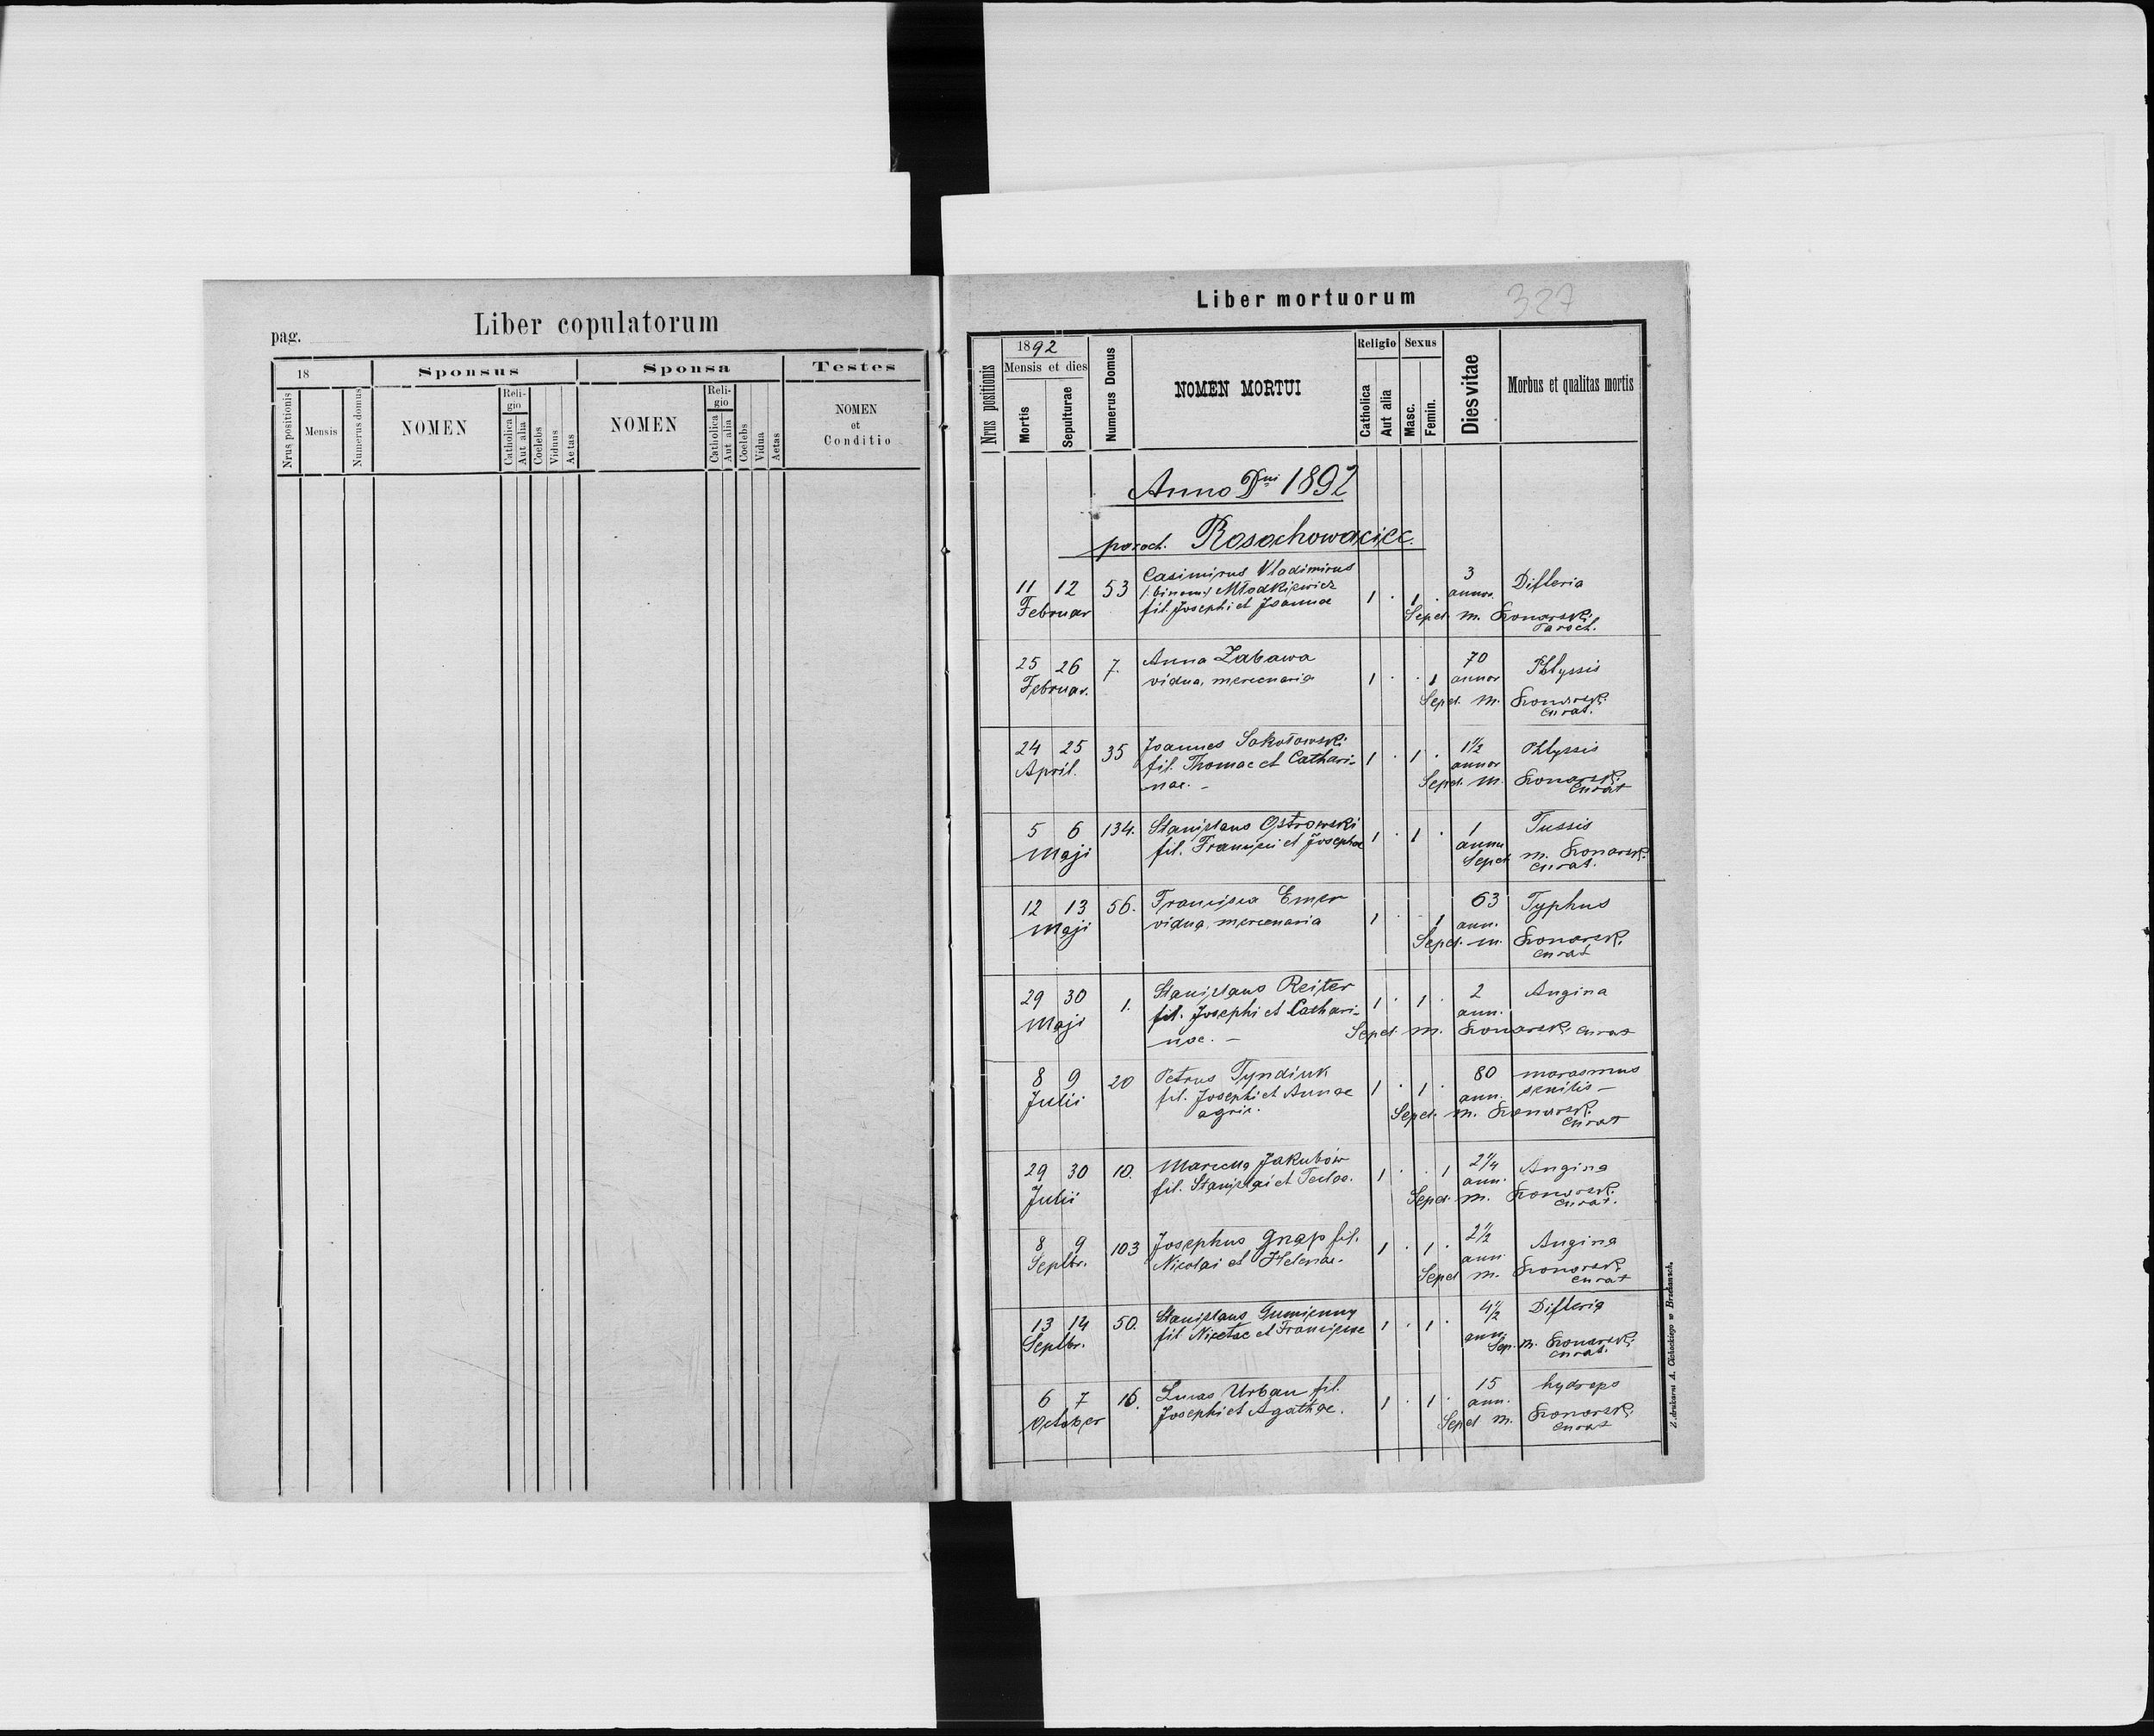 Liber copulatorum
pag.
18
Sponsus
Sponsa
Testes
Nrus positionis
Mensis
Numerus domus
NOMEN
Reli-
gio
Catholica
Aut alia
Coelebs
Viduus
Aetas
NOMEN
Reli-
gio
Catholica
Aut alia
Coelebs
Vidua
Aetas
NOMEN
et
Conditio
Liber mortuorum
327
Nrus positionis
1892
Mensis et dies
Mortis
Sepulturae
Numerus Domus
NOMEN MORTUI
Religio
Catholica
Aut alia
Sexus
Masc.
Femin.
Dies vitae
Morbus et qualitas mortis
Anno Dni 1892
paroch. Rosochowaciec.
11 12 53 Casimirus Vladimirus 3 Difteria
Februar /:binom:/ Młodkiewicz 1 . 1 annor.
fil. Josephi et Joannae
Sepel. m. Konarski
Paroch.
25 26 7. Anna Zabawa 70 Phtyssis
Februar. vidua, mercenaria 1 . . 1 annor
Sepel. m. Konarski
Curat.
24 25 35 Joannes Sokołowski 1 1/2 Phtyssis
April. fil. Thomae et Cathari- 1 . 1 . annor
nae. -
Sepel. m. Konarski
Curat
5 6 134. Stanislaus Ostrowski 1 . 1 . 1 Tussis
Maji fil. Francisci et Josephae annu
Sepel. m. Konarski
Curat.
12 13 56. Francisca Emer 63 Typhus
Maji vidua, mercenaria 1 . . 1 ann.
Sepel. m. Konarski
Curat
29 30 1. Stanislaus Reiter 1 . 1 . 2 Angina
Maji fil. Josephi et Cathari- ann.
nae. -
Sepel. m. Konarski Curat
8 9 20 Petrus Tyndiuk 1 . 1 . 80 marasmus
Julii fil. Josephi et Annae ann. senilis -
agric.
Sepel. m. Konarski
Curat
29 30 10. Marcella Jakubów 1 . . 1 2 1/4 Angina
Julii fil. Stanislai et Teclae. ann.
Sepel. m. Konarski
Curat.
8 9 103 Josephus Gnap fil. 1 . 1 . 2 1/2 Angina
Septbr. Nicolai et Helenae. ann.
Sepel m. Konarski
Curat
13 14 50. Stanislaus Gumienny 1 . 1 . 4 1/2 Difteria
Septbr. fil Nicetae et Franciscae ann.
Sep. m. Konarski
Curat.
6 7 16. Lucas Urban fil. 1 . 1 . 15 hydrops
October Josephi et Agathae. ann.
Sepel m. Konarski
Curat
Z drukarni A. Cichockiego w Brzeżanach.